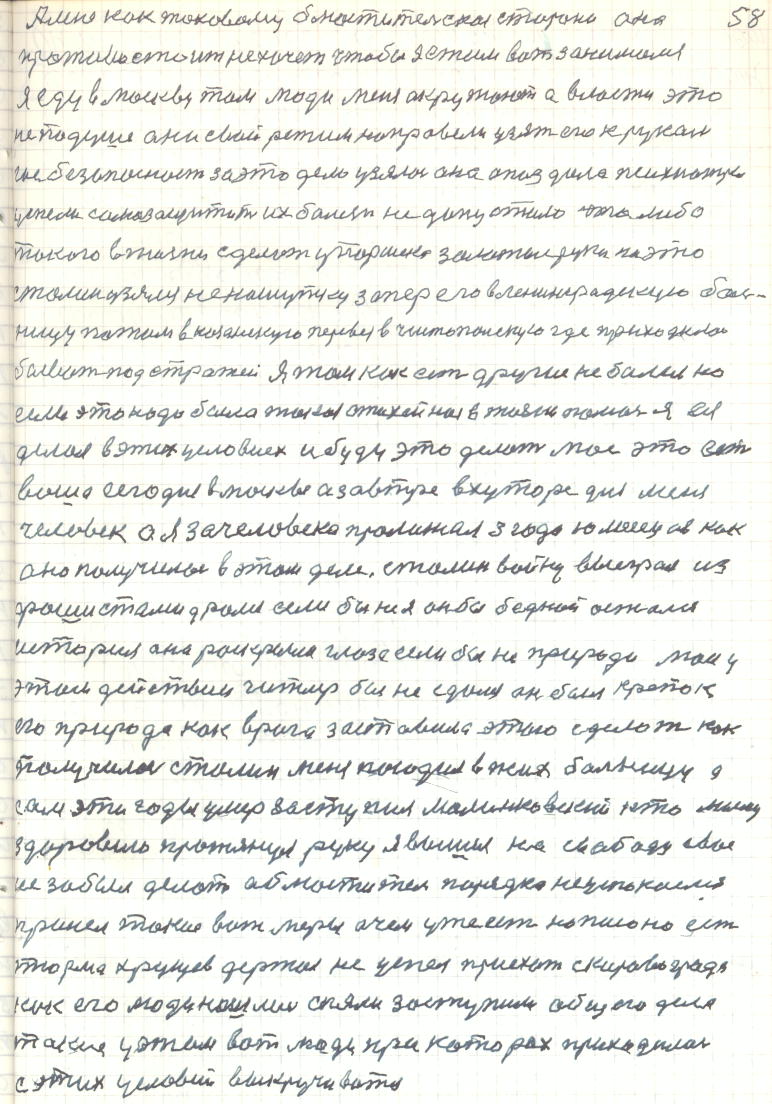 А мне как таковому блюстительская сторона она 58
противостоит не хочет чтобы я етим вот занимался
я еду в москву там люди меня окружают а власти это
не подуше они свой режим направели узят его крукам
гос безопасност за это дело узялос она опоздала психиатры
успели самозащитит их балезн не допустило чта либо
такого в жизни сделат у Паршека залатые руки на это
сталин узялся не нашутику запер его в ленинградскую бал-
ницу патам в казанскую первел в чистопалскую где приходилос
бывать под стражей Я там как ест другие не балел но
если это надо была такая стихейная в жизни помоч Я ея
делал в этих условиях и буду это делат мое это ест
ваша сегодня в москве а завтре в хуторе для меня
человек а Я за человека пролижал 3 года 10 месяцав как
ано получилос в этом деле. сталин войну выеграл из
фрошистами дрался если бы не я он бы бедной остался
история она раскрыла глаза если бы не природа маи у
этом действии гитлер бы не сдался он был крепок
его природа как врага заставила этаго сделат как
получилос сталин меня посодил в жих балницу а
сам эти годы умер заступил малинковский кто мнему
здоровило протянул руку я вышел на свабаду свое
не забыл делат а блюстител порядка неуспокоелся
принел такие вот меры а чем у тесет написано ест
тюрма хрущев держал не успел приехат с кировограда
как его люди нашлис сняли заступили общего дела
такие у этом вот люди при каторах приходилос
с этих условий выкручиватс